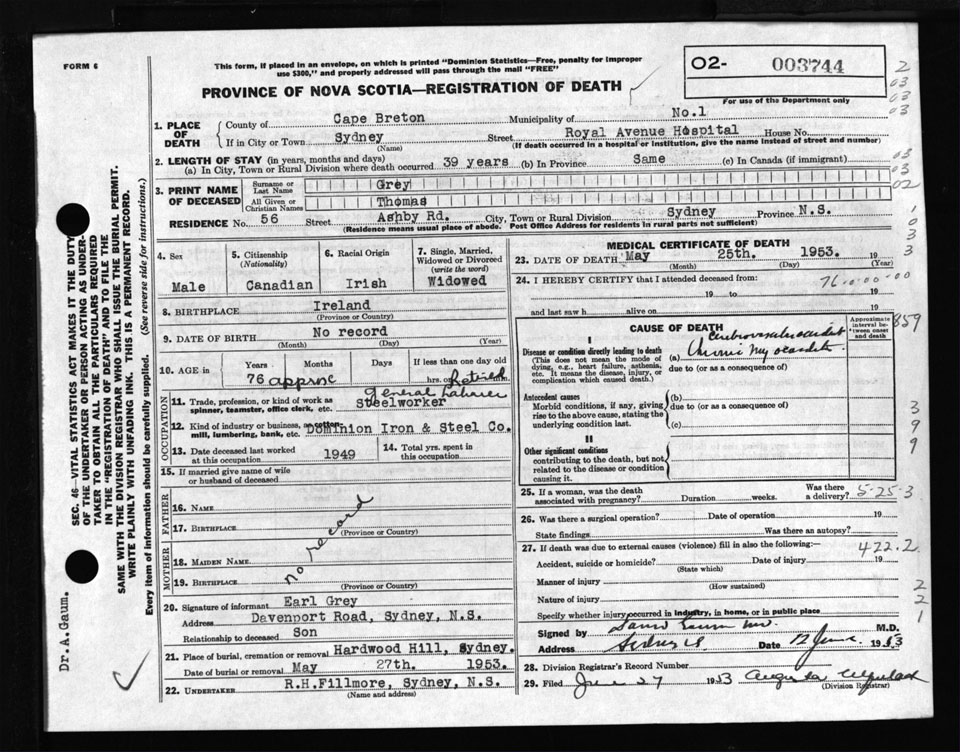 FORM 6
This form, if placed in an envelope, on which is printed "Dominion Statistics—Free, penalty for improper
use $300," and properly addressed will pass through the mail "FREE"
O2- 003744
For use of the Department only
PROVINCE OF NOVA SCOTIA—REGISTRATION OF DEATH
1. PLACE OF DEATH
County of Cape Breton Municipality of No.1
If in City or Town Sydney Street Royal Avenue Hospital House No.
(Name) (If death occurred in a hospital or institution, give the name instead of street and number)
2. LENGTH OF STAY (in years, months and days)
(a) In City, Town or Rural Division where death occurred 39 years (b) In Province Same (c) In Canada (if immigrant)
3. PRINT NAME OF DECEASED
Surname or Last Name Grey
All Given or Christian Names Thomas
RESIDENCE No. 56 Street Ashby Rd. City, Town or Rural Division Sydney Province N.S.
(Residence means usual place of abode. Post Office Address for residents in rural parts not sufficient)
4. Sex
Male
5. Citizenship
(Nationality)
Canadian
6. Racial Origin
Irish
7. Single, Married,
Widowed or Divorced
(write the word)
Widowed
8. BIRTHPLACE Ireland
(Province or Country)
9. DATE OF BIRTH No record
(Month) (Day) (Year)
10. AGE in
Years Months Days If less than one day old
76 approx hrs. or min.
Retired
General Laborer
11. Trade, profession, or kind of work as
spinner, teamster, office clerk, etc. Steelworker
12. Kind of industry or business, as cotton
mill, lumbering, bank, etc. Dominion Iron & Steel Co.
13. Date deceased last worked
at this occupation 1949
14. Total yrs. spent in
this occupation
OCCUPATION
15. If married give name of wife
or husband of deceased
FATHER
16. Name
17. Birthplace
(Province or Country)
no record
MOTHER
18. Maiden Name
19. Birthplace
(Province or Country)
20. Signature of informant Earl Grey
Address Davenport Road, Sydney, N.S.
Relationship to deceased Son
21. Place of burial, cremation or removal Hardwood Hill, Sydney.
Date of burial or removal May 27th. 1953.
22. Undertaker R.H.Fillmore, Sydney, N.S.
(Name and address)
MEDICAL CERTIFICATE OF DEATH
23. DATE OF DEATH May 25th. 1953. 19
(Month) (Day) (Year)
24. I HEREBY CERTIFY that I attended deceased from:
76-0-00-00
19 to 19
and last saw h alive on 19
CAUSE OF DEATH
Approximate
interval between onset
and death
I
Disease or condition directly leading to death
(This does not mean the mode of
dying, e.g., heart failure, asthenia,
etc. It means the disease, injury, or
complication which caused death.)
(a) Chronic Myocarditis
due to (or as a consequence of)
Antecedent causes
Morbid conditions, if any, giving
rise to the above cause, stating the
underlying condition last.
(b)
due to (or as a consequence of)
(c)
II
Other significant conditions
contributing to the death, but not
related to the disease or condition
causing it.
25. If a woman, was the death
associated with pregnancy? Duration weeks. Was there
a delivery? 5-25-3
26. Was there a surgical operation? Date of operation 19
State findings Was there an autopsy?
27. If death was due to external causes (violence) fill in also the following:— 422.2
Accident, suicide or homicide? Date of injury 19
(State which)
Manner of injury
(How sustained)
Nature of injury
Specify whether injury occurred in industry, in home, or in public place
Signed by M.D.
Address Sydney Date 12 June 1953
28. Division Registrar's Record Number
29. Filed June 27 1953 Augusta
(Division Registrar)
SEC. 46—VITAL STATISTICS ACT MAKES IT THE DUTY
OF THE UNDERTAKER OR PERSON ACTING AS UNDER-
TAKER TO OBTAIN ALL THE PARTICULARS REQUIRED
IN THE "REGISTRATION OF DEATH" AND TO FILE THE
SAME WITH THE DIVISION REGISTRAR WHO SHALL ISSUE THE BURIAL PERMIT.
WRITE PLAINLY WITH UNFADING INK. THIS IS A PERMANENT RECORD.
Every item of information should be carefully supplied. (See reverse side for instructions.)
Dr.A.Gaum.
2
03
03
03
03
03
02
1
0
3
3
859
3
9
9
2
2
1